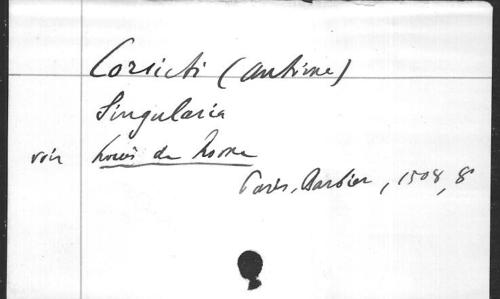 Corsicti (Antime)
Singularia
voir Louis de Rome
Paris, Barbier, 1508, 8°